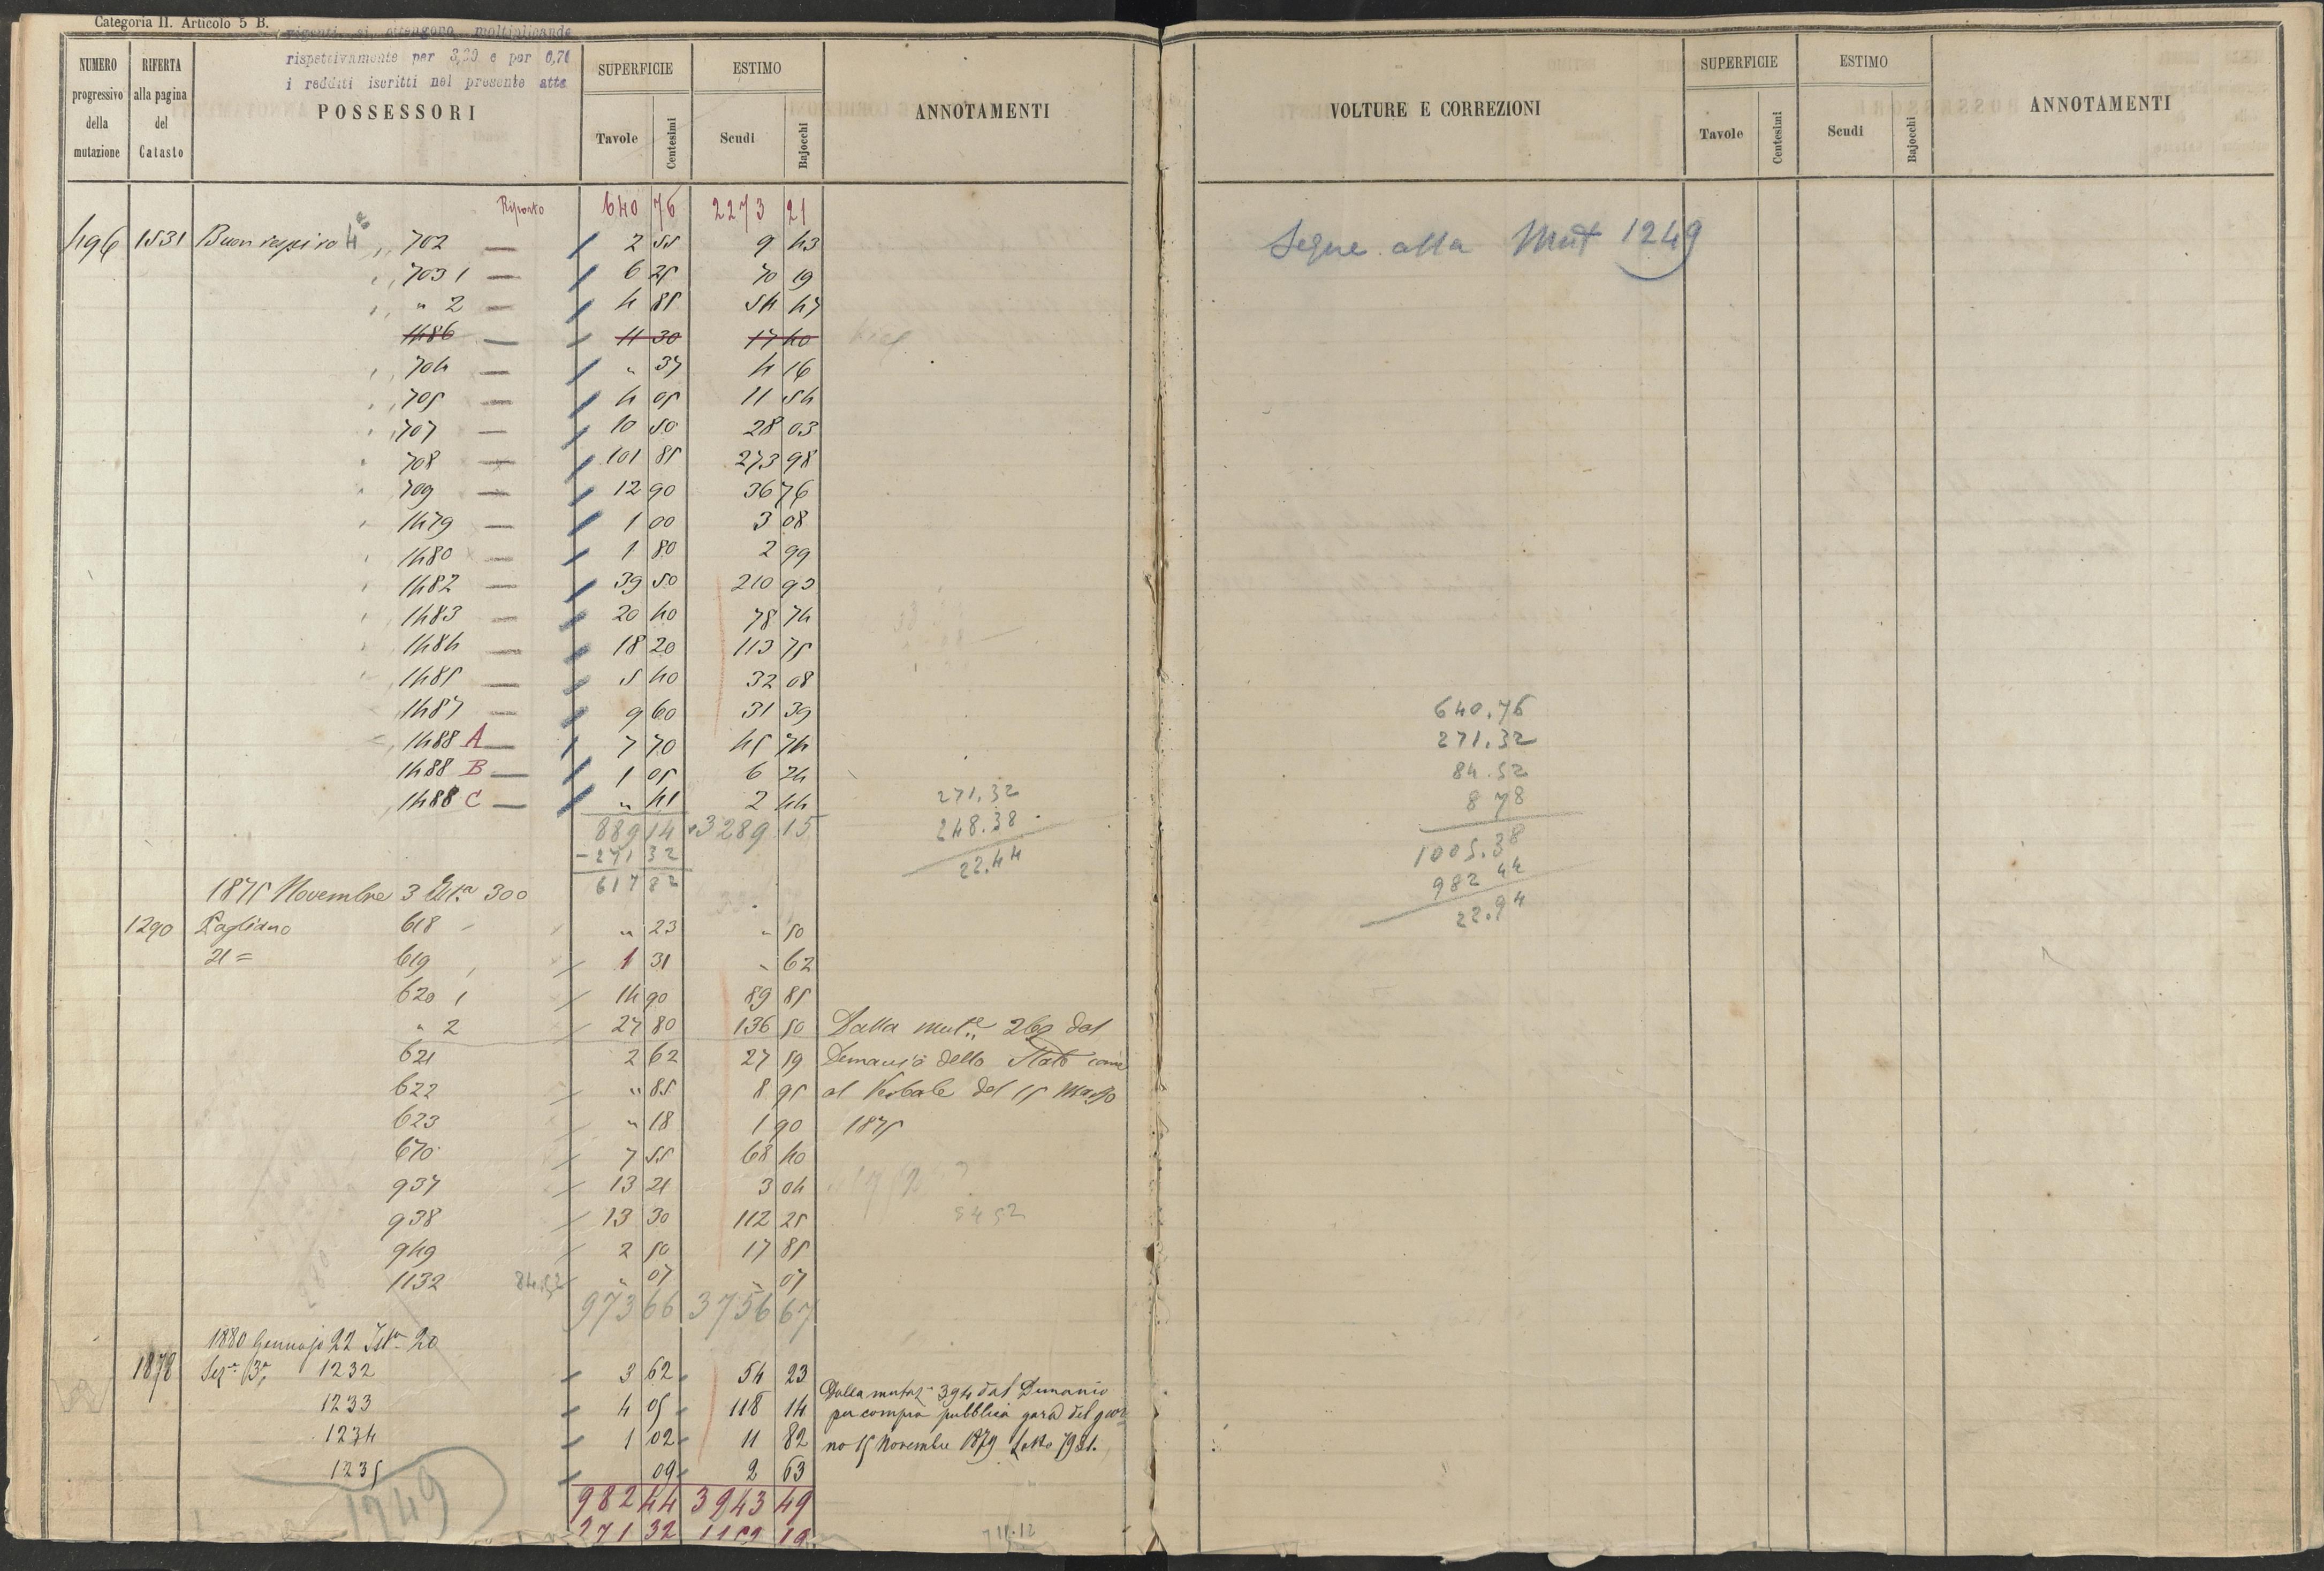 Categoria II. Articolo 5 B.
si ottengono moltiplicando
rispettivamente per 3,20 e per 0,71
i redditi iscritti nel presente atto
NUMERO progressivo della mutazione
RIFERTA alla pagina del Catasto
POSSESSORI
SUPERFICIE
Tavole Centesimi
ESTIMO
Scudi Bajocchi
ANNOTAMENTI
Riporto 640 76 2273 21
496 1531 Buon respiro 4° ,, 702 — 2 55 9 43
,, 703 1 — 6 25 70 19
,, " 2 — 4 85 54 47
1486 — 11 30 17 40
,, 704 — " 37 4 16
,, 705 — 4 05 11 54
,, 707 — 10 50 28 03
708 — 101 85 273 98
709 — 12 90 36 76
1479 — 1 00 3 08
1480 — 1 80 2 99
1482 — 39 50 210 93
1483 — 20 40 78 74
1484 — 18 20 113 75
1485 — 5 40 32 08
1487 — 9 60 31 39
1488 A — 7 70 45 74
1488 B — 1 05 6 24
1488 C — " 41 2 44
889 14 3289 15
- 271 32
617 82
271.32
248.38
22.44
1875 Novembre 3 300
1290 Pagliano 618 " 23 " 50
21 = 619 1 31 " 62
620 1 14 90 89 85
" 2 27 80 136 50 Dalla mut.e 262 dal
621 2 62 27 59 Demanio dello Stato come
622 " 85 8 95 al Verbale del 15 Marzo
623 " 18 1 90 1875
670 7 55 68 40
937 13 21 3 04
938 13 30 112 25
949 2 50 17 85
1132 84.52 " 07 " 07
84 52
973 66 3756 67
1880 Gennajo 22 Ist.a 20
1878 Sez.e 13a 1232 3 62 54 23
1233 4 05 118 14
1234 1 02 11 82
1235 09 2 63
Dalla mutaz.e 394 dal Demanio
per compra pubblica gara del gior
no 15 Novembre 1879 Lotto 7921.
982 44 3943 49
271 32 19
1249
711.12
VOLTURE E CORREZIONI
SUPERFICIE
Tavole Centesimi
ESTIMO
Scudi Bajocchi
ANNOTAMENTI
Segue alla Mut 1249
640.76
271.32
84.52
8 78
1005.38
982 44
22.94